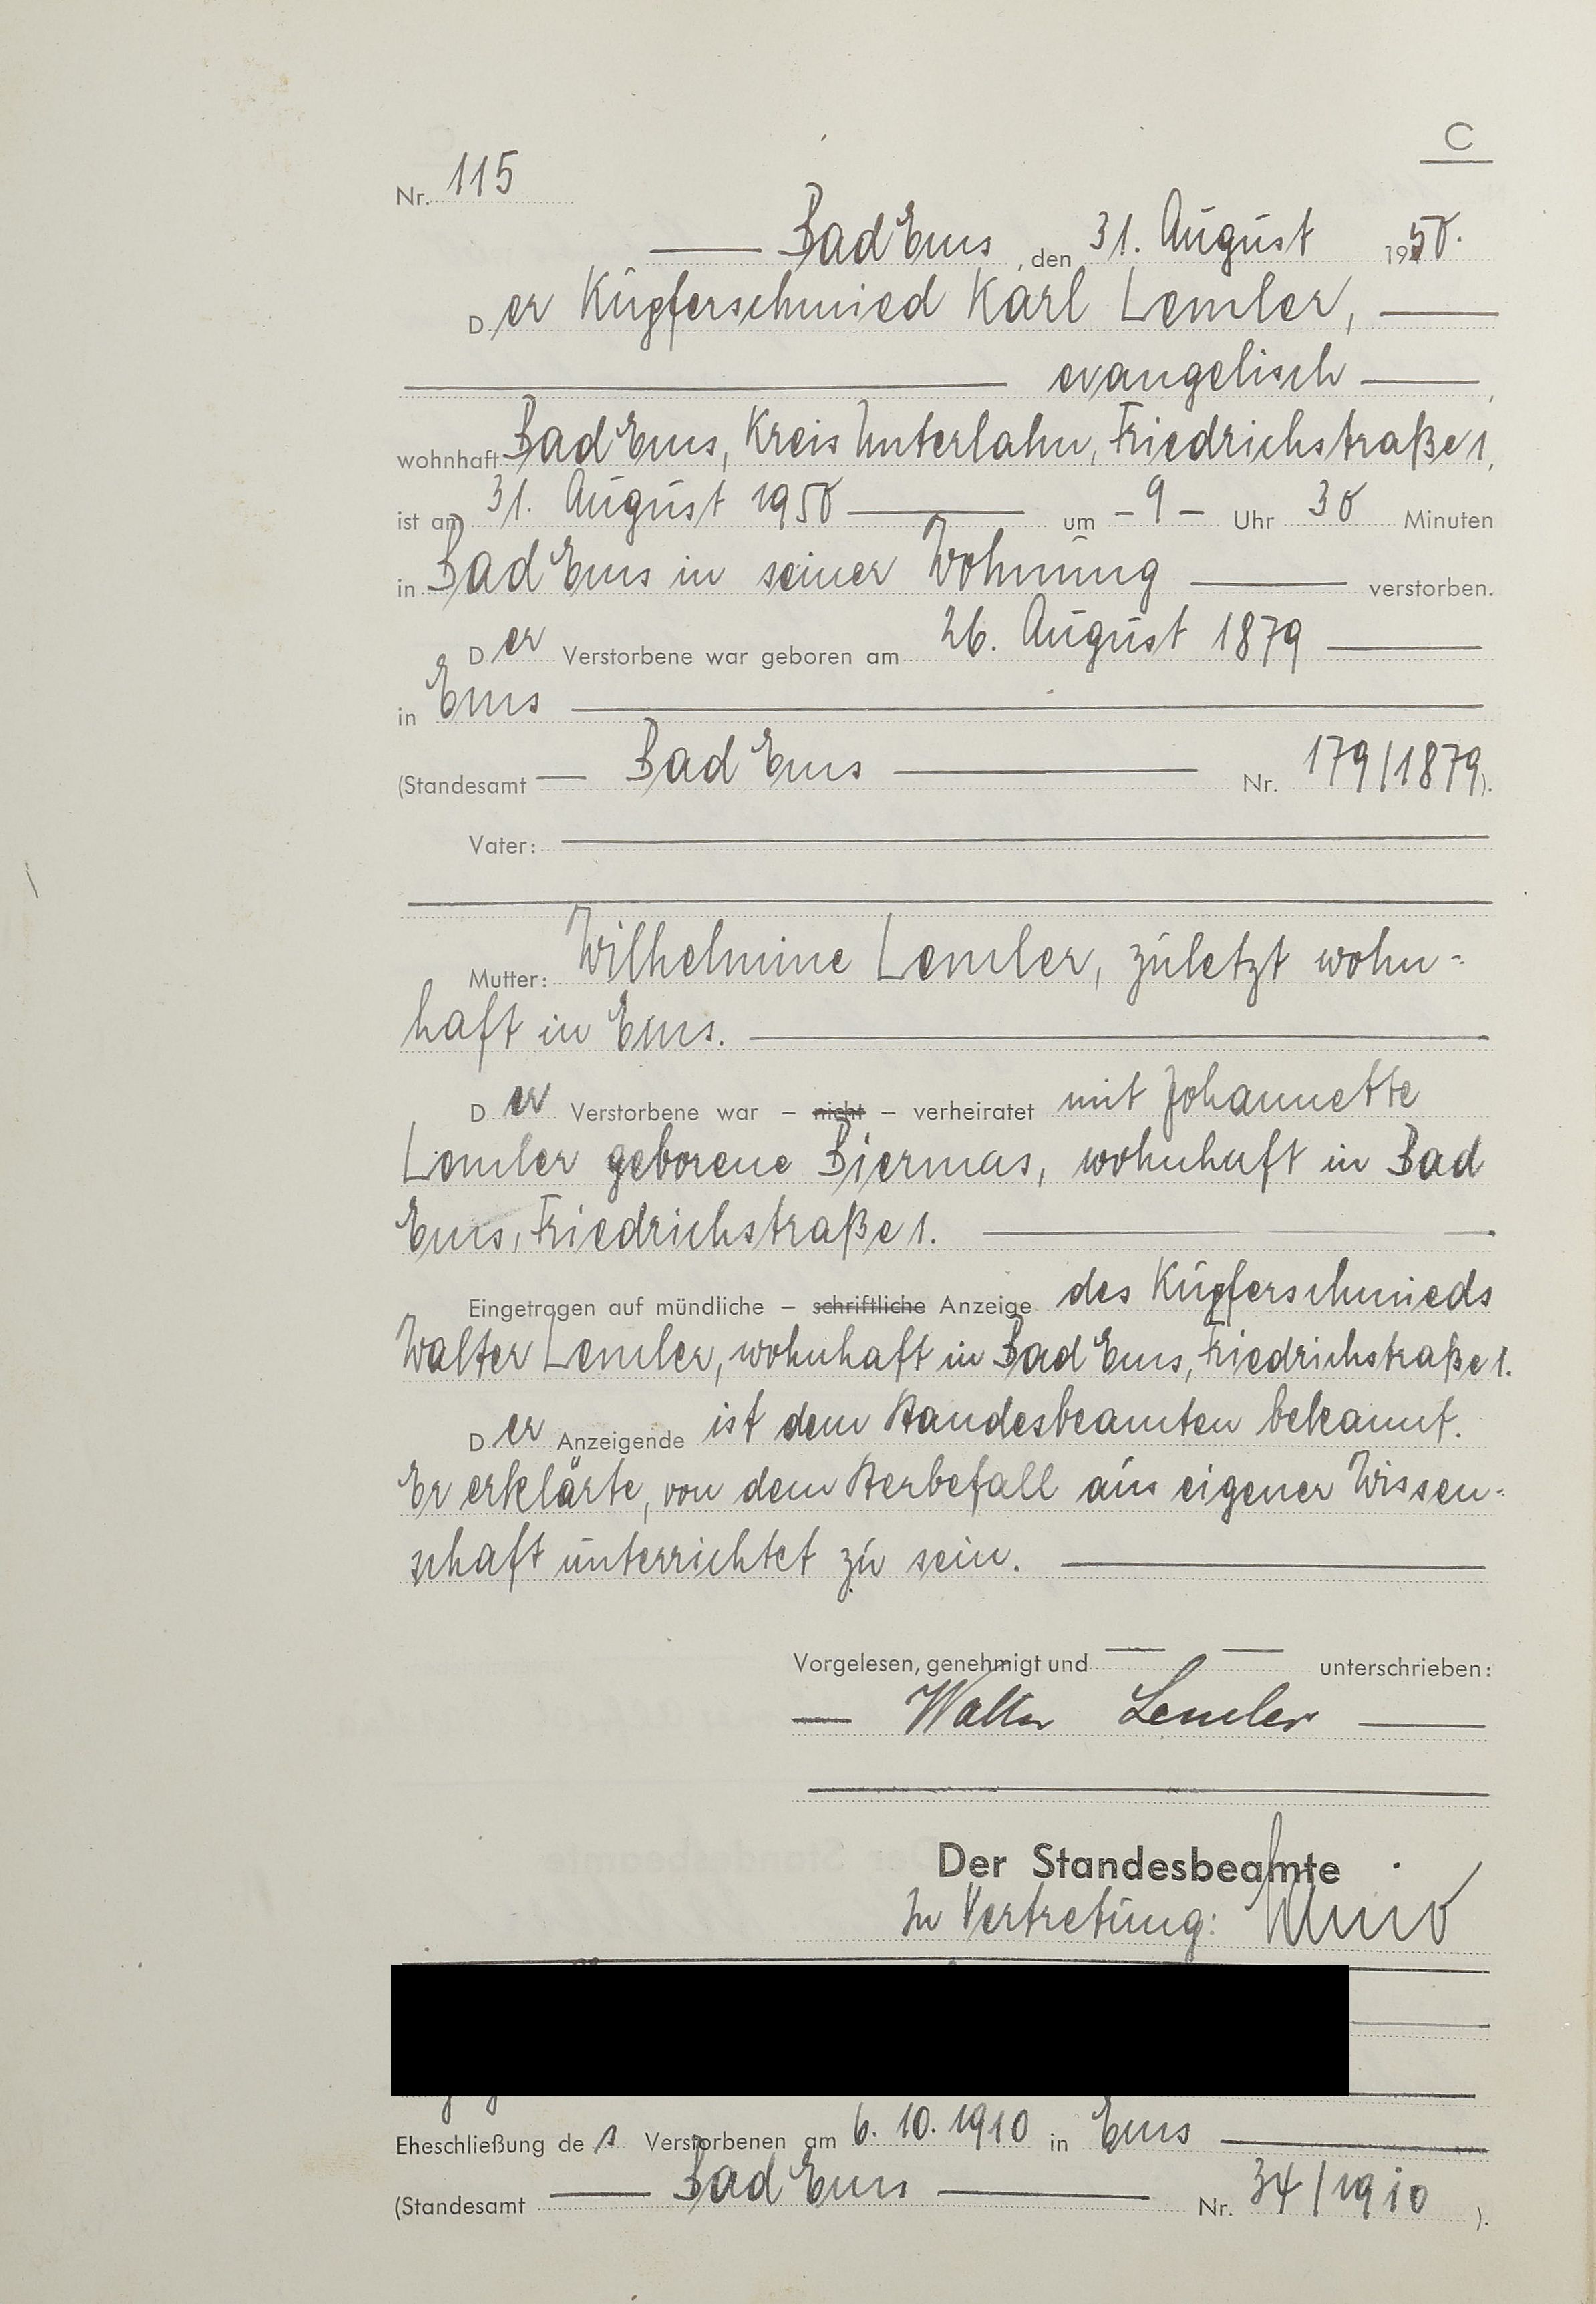 C
Nr. 115
Bad Ems, den 31. August 1950.
Der Kupferschmied Karl Lemler,
evangelisch,
wohnhaft Bad Ems, Kreis Unterlahn, Friedrichstraße 1,
ist am 31. August 1950 um - 9 - Uhr 30 Minuten
in Bad Ems in seiner Wohnung verstorben.
Der Verstorbene war geboren am 26. August 1879
in Ems
(Standesamt Bad Ems Nr. 179/1879).
Vater:
Mutter: Wilhelmine Lemler, zuletzt wohn-
haft in Ems.
Der Verstorbene war – nicht – verheiratet mit Johannette
Lemler geborene Biermas, wohnhaft in Bad
Ems, Friedrichstraße 1.
Eingetragen auf mündliche – schriftliche Anzeige des Kupferschmieds
Walter Lemler, wohnhaft in Bad Ems, Friedrichstraße 1.
Der Anzeigende ist dem Standesbeamten bekannt.
Er erklärte, von dem Sterbefall aus eigener Wissen-
schaft unterrichtet zu sein.
Vorgelesen, genehmigt und unterschrieben:
Walter Lemler
Der Standesbeamte
In Vertretung:
Eheschließung des Verstorbenen am 6. 10. 1910 in Ems
(Standesamt Bad Ems Nr. 34/1910).